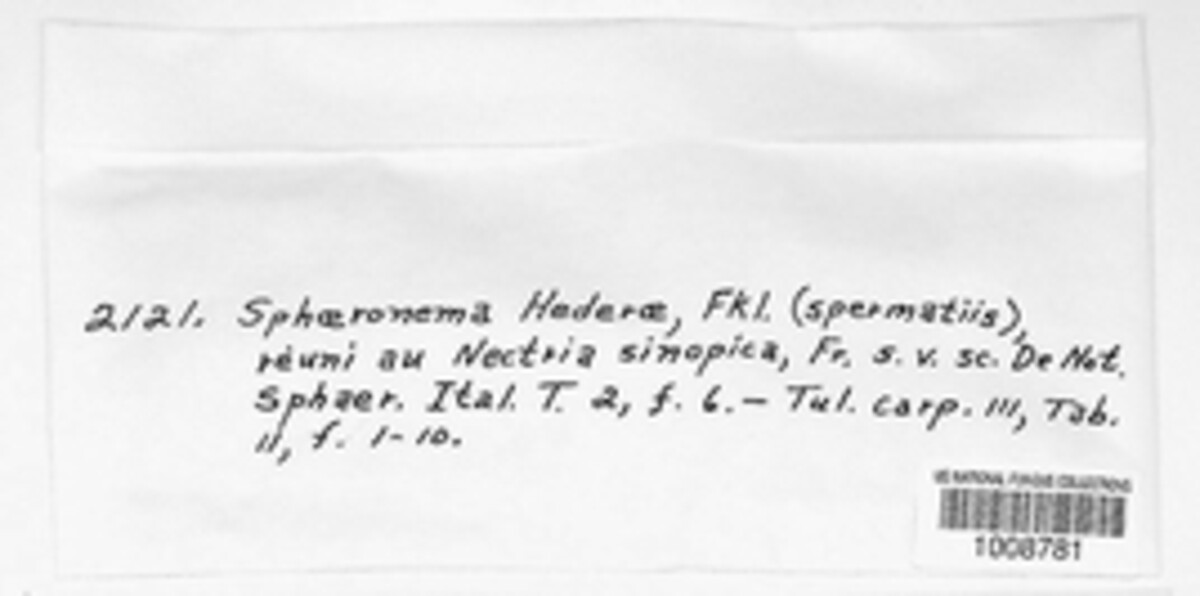 2121. Sphæronema Hederæ, Fkl. (spermatiis),
réuni au Nectria sinopica, Fr. s. v. sc. De Not.
Sphaer. Ital. T. 2, f. 6. — Tul. carp. III, Tab.
II, f. 1-10.
US NATIONAL FUNGUS COLLECTIONS
1008781